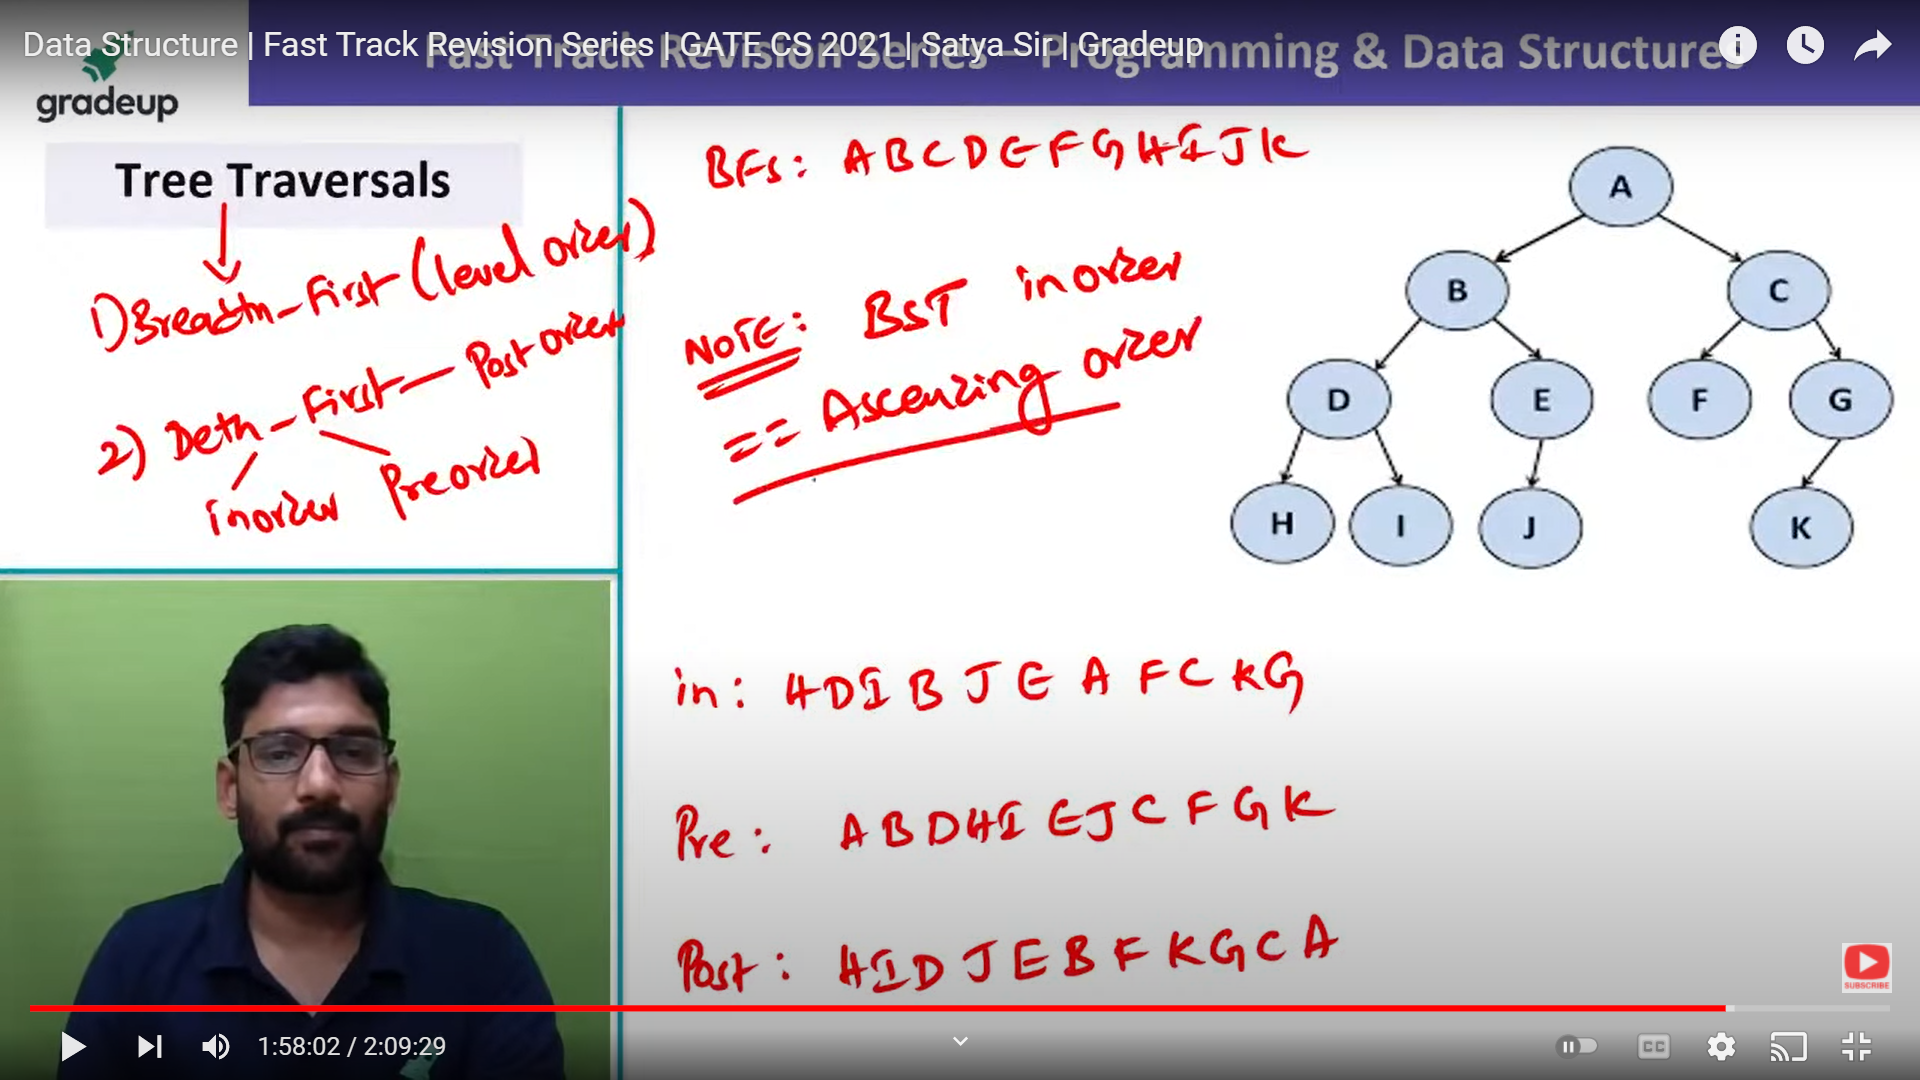 Data Structure | Fast Track Revision Series | GATE CS 2021 | Satya Sir | Gradeup
Fast Track Revision Series – Programming & Data Structures
gradeup
Tree Traversals
1) Breadth-First (level order)
2) Deth-First — Post order
inorder Preorder
BFS: A B C D E F G H I J K
NOTE: BST inorder
== Ascending order
A
B C
D E F G
H I J K
in: H D I B J E A F C K G
Pre: A B D H I E J C F G K
Post: H I D J E B F K G C A
SUBSCRIBE
1:58:02 / 2:09:29
CC